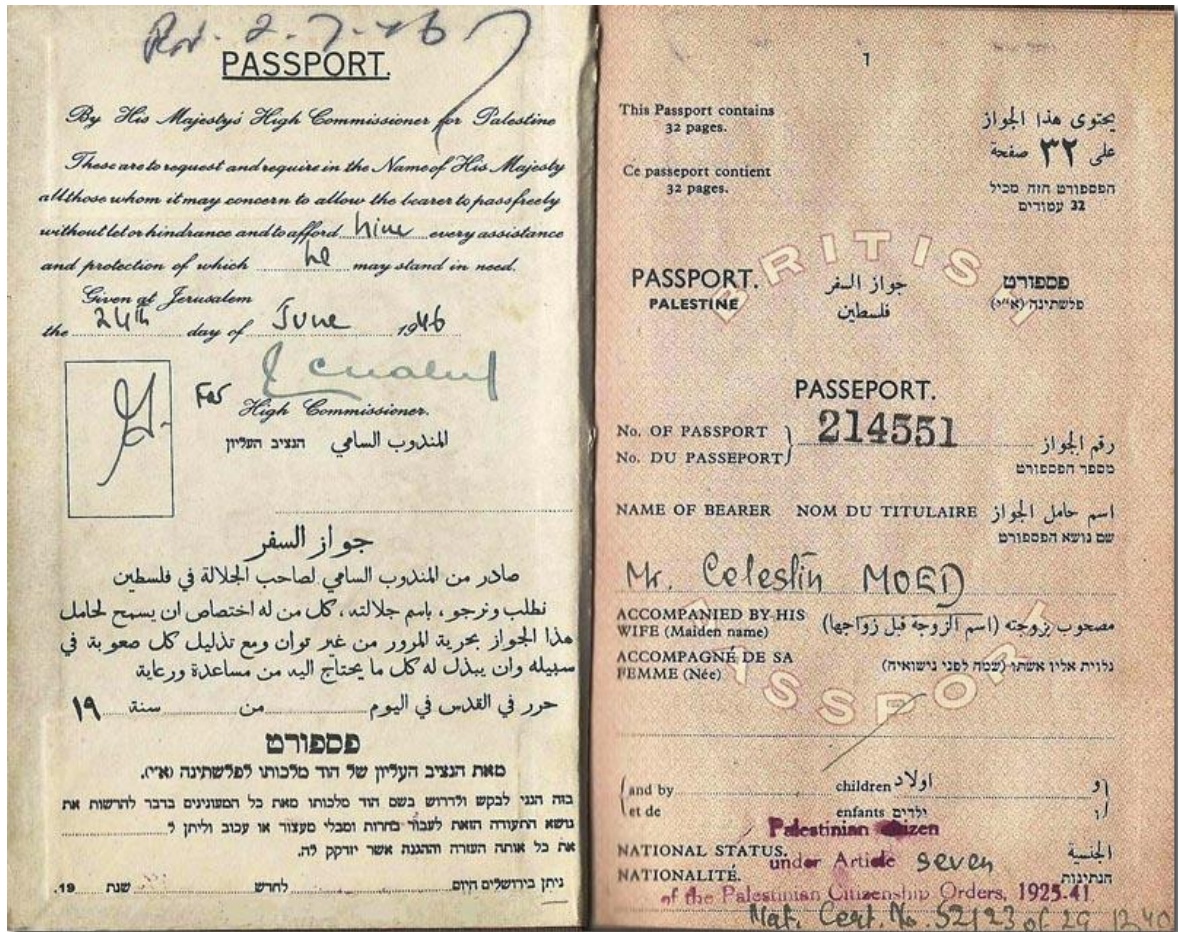 Rd. 2-7-46
PASSPORT.
By His Majesty's High Commissioner for Palestine
These are to request and require in the Name of His Majesty
all those whom it may concern to allow the bearer to pass freely
without let or hindrance and to afford him every assistance
and protection of which he may stand in need.
Given at Jerusalem
the 24th day of June 1946
For
High Commissioner.
المندوب السامي הנציב העליון
جواز السفر
صادر من المندوب السامي لصاحب الجلالة في فلسطين
نطلب ونرجو، باسم جلالته، كل من له اختصاص ان يسمح لحامل
هذا الجواز بحرية المرور من غير توان ومع تذليل كل صعوبة في
سبيله وان يبذل له كل ما يحتاج اليه من مساعدة ورعاية
حرر في القدس في اليوم من سنة ١٩
פספורט
מאת הנציב העליון של הוד מלכותו לפלשתינה (א״י).
בזה הנני לבקש ולדרוש בשם הוד מלכותו מאת כל המעונינים בדבר להרשות את
נושא התעודה הזאת לעבור בחרות ומבלי מעצור או עכוב וליתן ל
את כל אותה העזרה וההגנה אשר יזדקק לה.
ניתן בירושלים היום לחדש שנת 19.
1
This Passport contains
32 pages.
يحتوى هذا الجواز
على ٣٢ صفحة
Ce passeport contient
32 pages.
הפספורט הזה מכיל
32 עמודים
BRITISH
PASSPORT. جواز السفر פספורט
PALESTINE فلسطين פלשתינה (א״י)
PASSEPORT.
No. OF PASSPORT 214551 رقم الجواز
No. DU PASSEPORT מספר הפספורט
NAME OF BEARER NOM DU TITULAIRE اسم حامل الجواز
שם נושא הפספורט
Mr. Celestin MOED
ACCOMPANIED BY HIS
WIFE (Maiden name) مصحوب بزوجته (اسم الزوجة قبل زواجها)
ACCOMPAGNÉ DE SA
FEMME (Née) נלוית אליו אשתו (שמה לפני נישואיה)
PASSPORT
and by children اولاد و
et de enfants ילדים ו
Palestinian Citizen
NATIONAL STATUS. under Article seven الجنسية
NATIONALITÉ. הנתינות
of the Palestinian Citizenship Orders, 1925-41
Nat. Cert. No. 52123 of 29.12.40